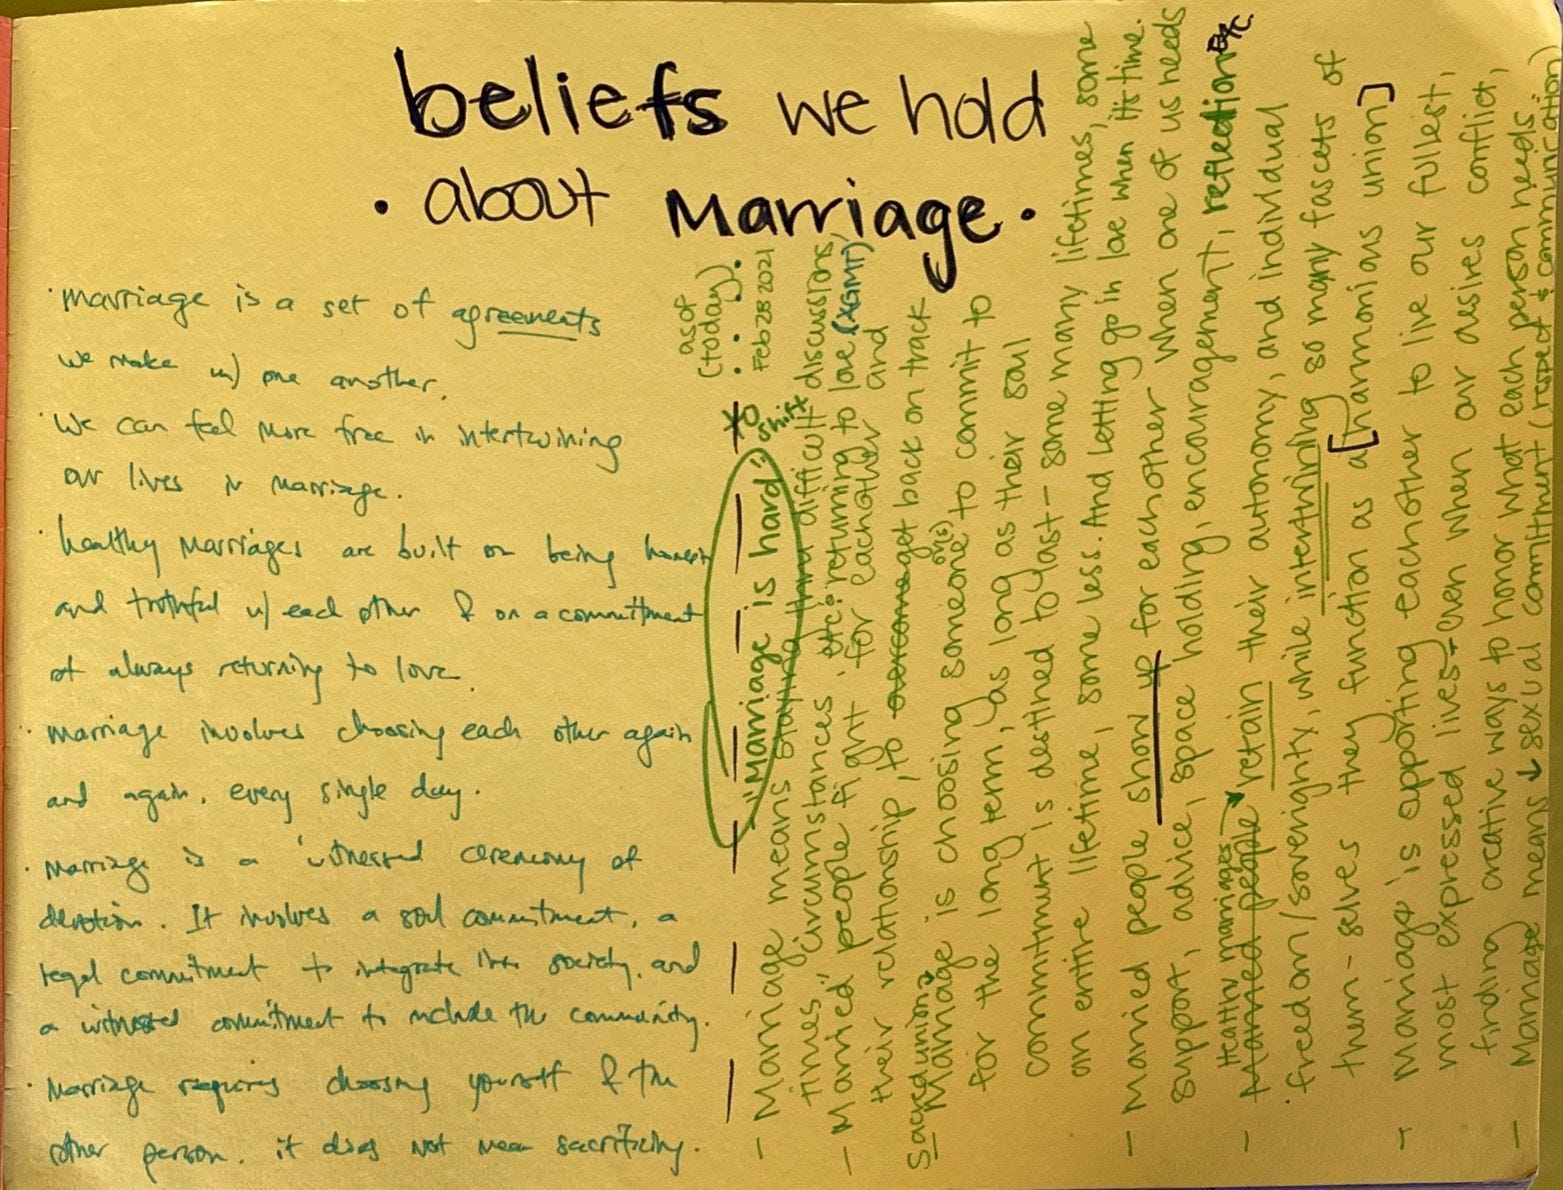 beliefs we hold
• about Marriage •
as of
(today)
Feb 28 2021
• marriage is a set of agreements
we make w/ one another.
• We can feel more free in intertwining
our lives in marriage.
• healthy marriages are built on being honest
and truthful w/ each other & on a commitment
of always returning to love.
• marriage involves choosing each other again
and again, every single day.
• marriage is a witnessed ceremony of
devotion. It involves a soul commitment, a
legal commitment to integrate into society, and
a witnessed commitment to include the community.
• Marriage requires choosing yourself & the
other person. it does not mean sacrificing.
to shift
"Marriage is hard"
— Marriage means staying thru difficult discussions,
times, circumstances etc: returning to love (XGMT)
— Married people fight for eachother and
their relationship, to overcome get back on track
Sacred union
Marriage is choosing someone(s) to commit to
for the long term, as long as their soul
commitment is destined to last — some many lifetimes, some
an entire lifetime, some less. And letting go in love when it's time.
— Married people show up for eachother when one of us needs
support, advice, space holding, encouragement, reflection Etc.
Healthy marriages
— Married people retain their autonomy, and individual
freedom/soverighty, while intertwining so many fascets of
them-selves they function as a [harmonians union]
— Marriage is apporting eachother to live our fullest,
most expressed lives — even when our desires conflict,
finding creative ways to honor what each person needs.
— Marriage means ↓ sexual commitment (respect & communication)